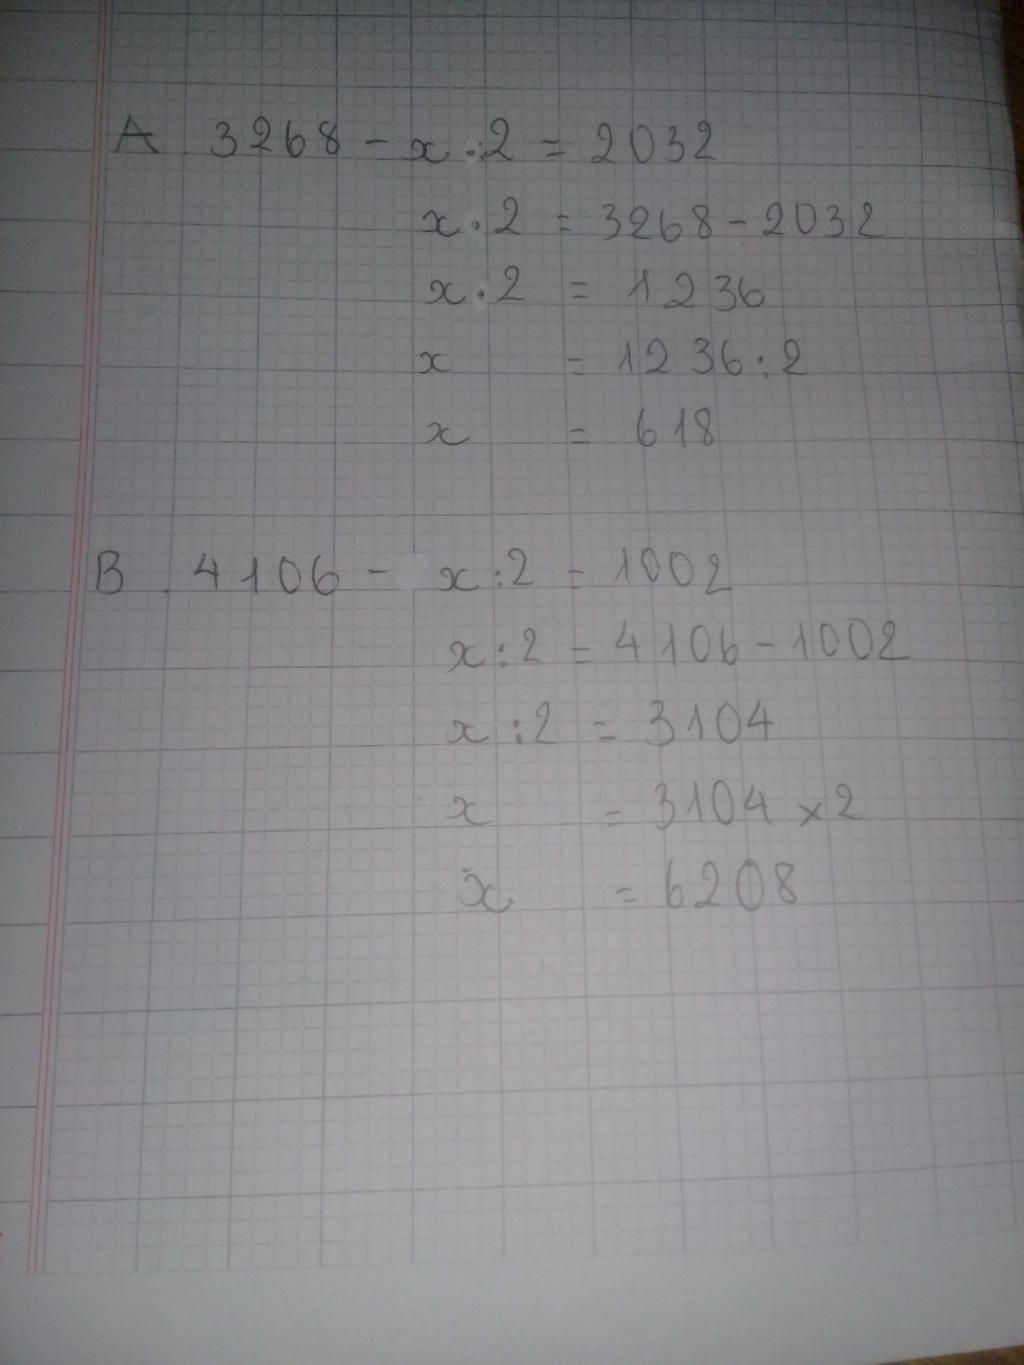 A 3268 - x : 2 = 2032
x . 2 = 3268 - 2032
x . 2 = 1236
x = 1236 : 2
x = 618
B 4106 - x : 2 = 1002
x : 2 = 4106 - 1002
x : 2 = 3104
x = 3104 × 2
x = 6208